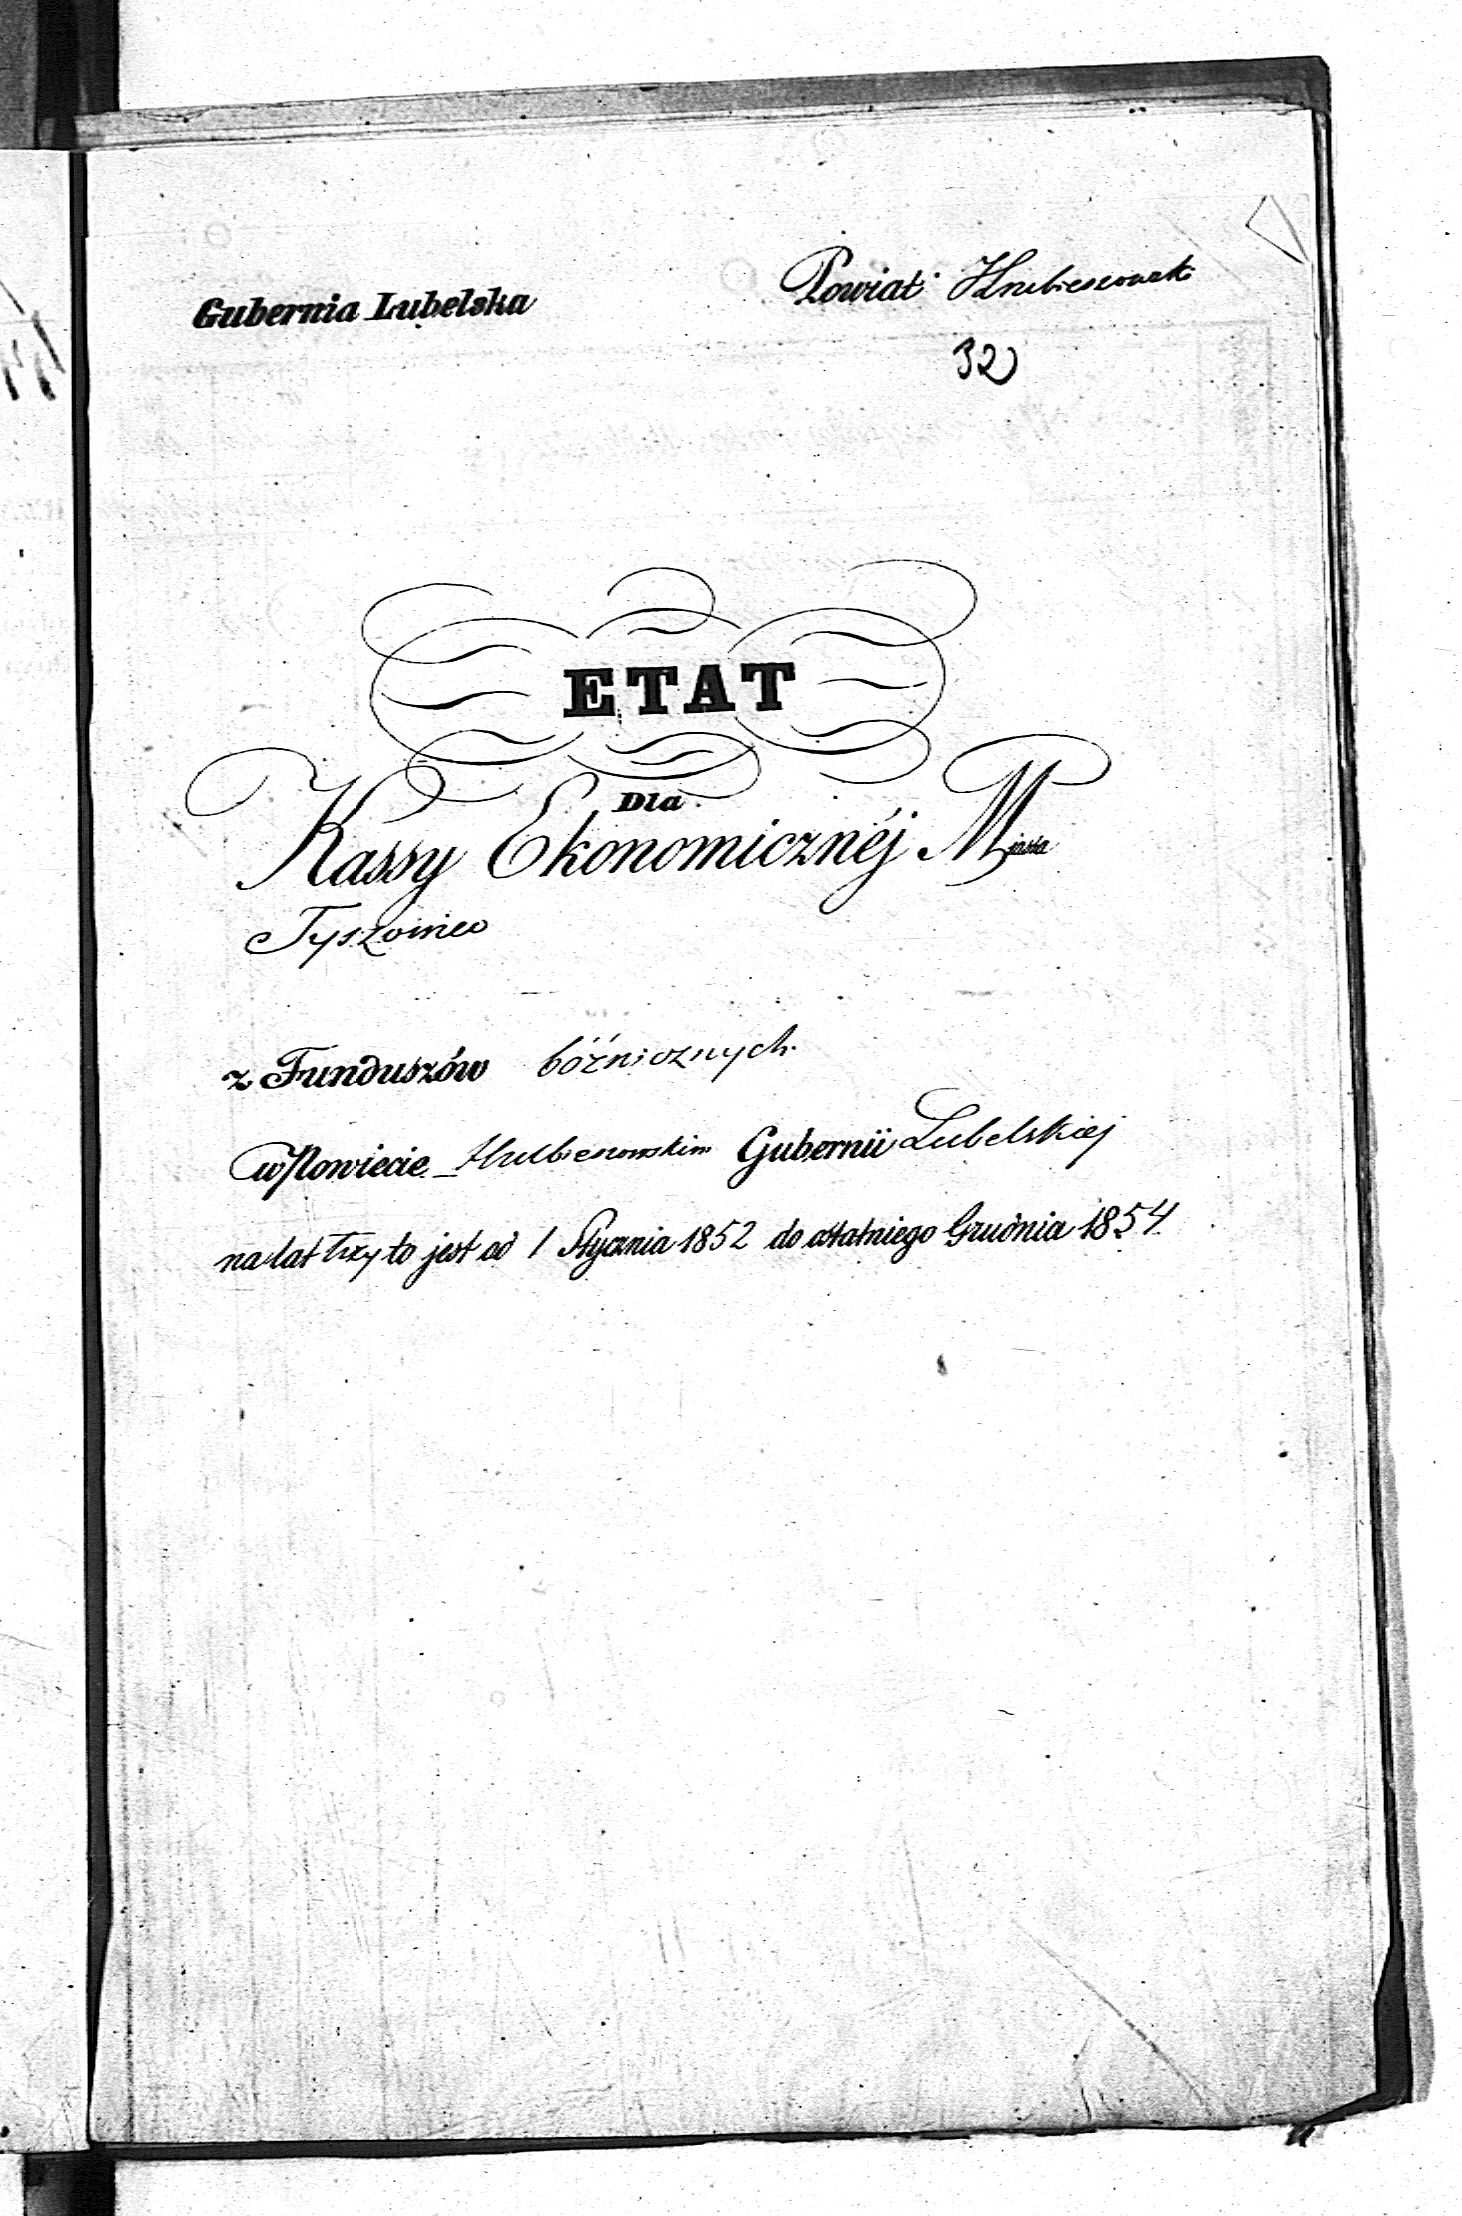 Gubernia Lubelska
Powiat Hrubieszowsk
32
ETAT
Dla
Kassy Ekonomicznéj Miasta
Tyszowiec
z Funduszów bóżnicznych
w Powiecie Hrubieszowskim Gubernii Lubelskiej
na lat trzy to jest od 1 Stycznia 1852 do ostatniego Grudnia 1854